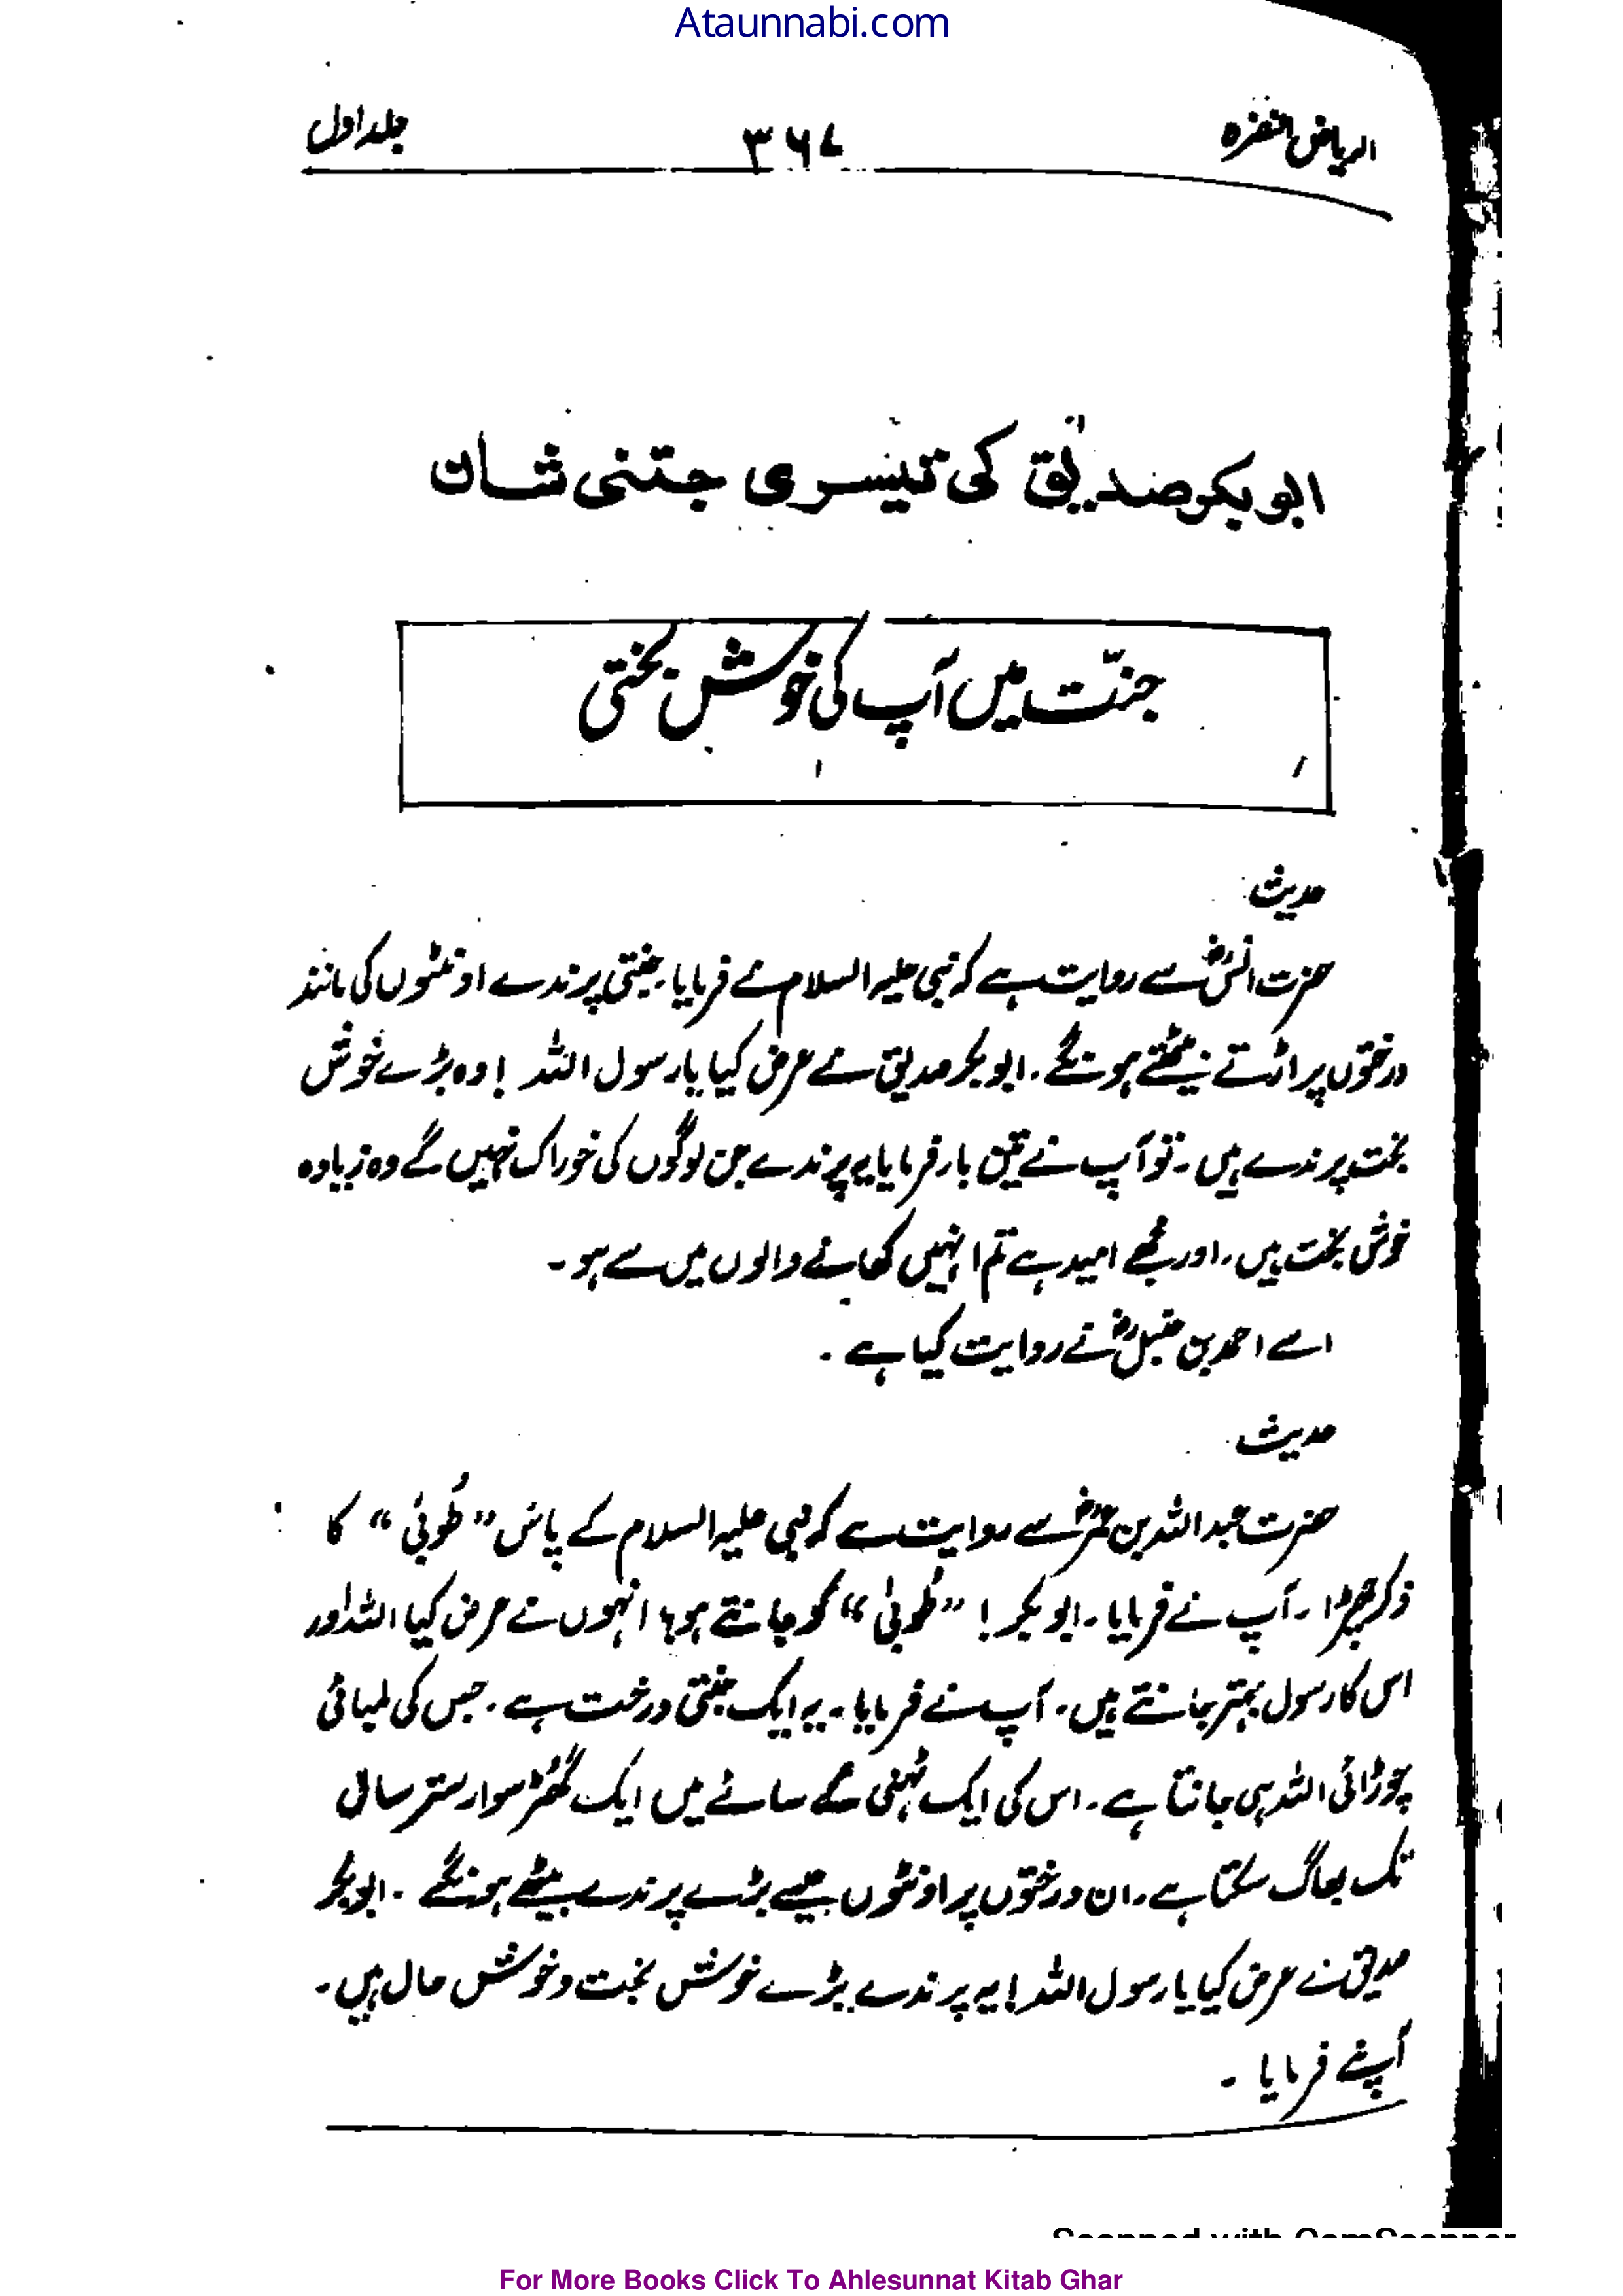 Ataunnabi.com
الریاض النضرہ ۳۶۷ جلد اول
ابوبکر صدیقؓ کی تیسری جنتی شان
جنّت میں آپ کی خوش بختی
حدیث
حضرت انسؓ سے روایت ہے کہ نبی علیہ السلام نے فرمایا۔ جنتی پرندے اونٹوں کی مانند
درختوں پر اڑتے بیٹھتے ہونگے۔ ابوبکر صدیق نے عرض کیا یا رسول اللہ! وہ بڑے خوش
بخت پرندے ہیں۔ تو آپ نے تین بار فرمایا یہ پرندے جن لوگوں کی خوراک بنیں گے وہ زیادہ
خوش بخت ہیں۔ اور مجھے امید ہے تم انہیں کھانے والوں میں سے ہو۔
اسے احمد بن حنبلؓ نے روایت کیا ہے۔
حدیث
حضرت عبداللہ بن عمرؓ سے روایت ہے کہ نبی علیہ السلام کے پاس ”طُوبیٰ“ کا
ذکر چھڑا۔ آپ نے فرمایا۔ ابوبکر! ”طُوبیٰ“ کو جانتے ہو؟ انہوں نے عرض کیا اللہ اور
اس کا رسول بہتر جانتے ہیں۔ آپ نے فرمایا۔ یہ ایک جنتی درخت ہے۔ جس کی لمبائی
چوڑائی اللہ ہی جانتا ہے۔ اس کی ایک ٹہنی کے سائے میں ایک گھڑ سوار ستر سال
تک بھاگ سکتا ہے۔ ان درختوں پر اونٹوں جیسے بڑے پرندے بیٹھے ہونگے۔ ابوبکر
صدیق نے عرض کیا یا رسول اللہ! یہ پرندے بڑے خوش بخت و خوش حال ہیں۔
آپنے فرمایا۔
Scanned with CamScanner
For More Books Click To Ahlesunnat Kitab Ghar